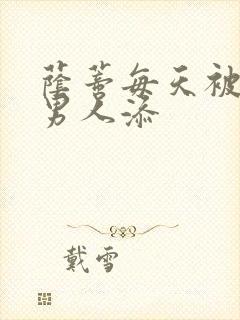 蔭蒂每天被
男人添
戴雪